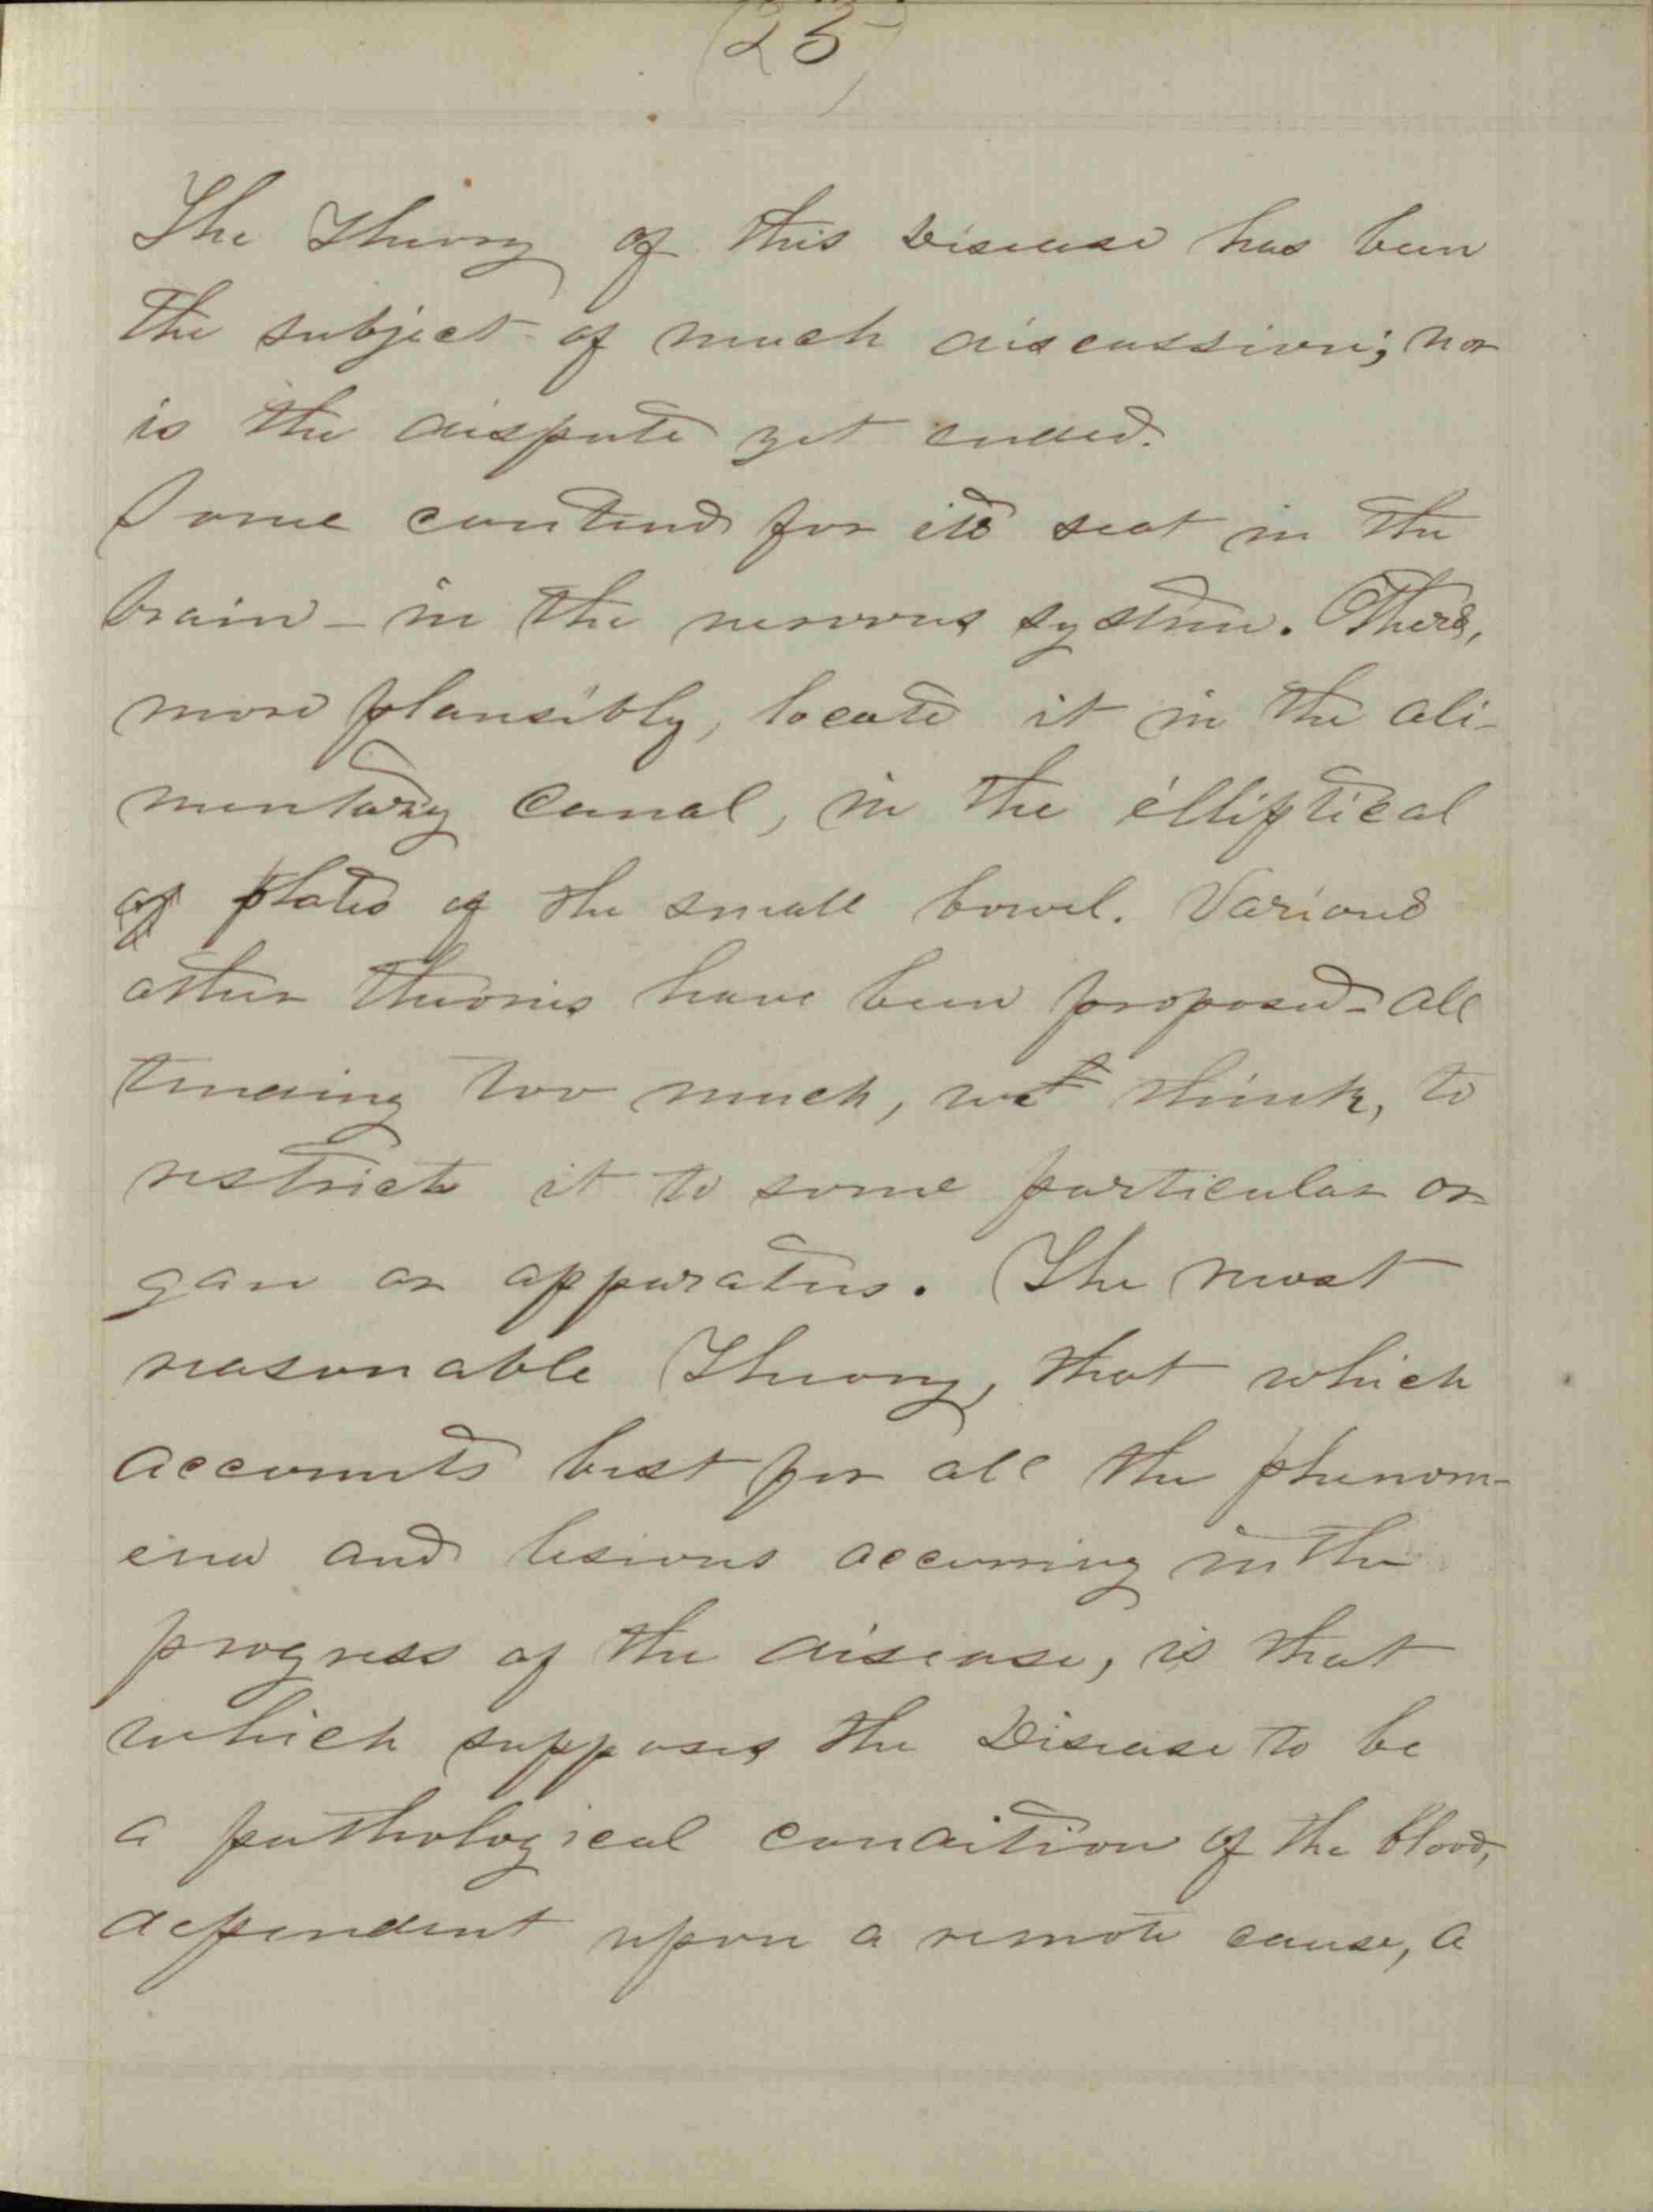 (25)
The Theory of this Disease has been
the subject of much discussion; nor
is the dispute yet ended.
Some contend for its seat in the
brain – in the nervous system. Others,
more plausibly, locate it in the ali-
mentary canal, in the elliptical
of plates of the small bowel. Various
other theories have been proposed – all
tending too much, we think, to
restrict it to some particular or-
gan or apparatus. The most
reasonable Theory, that which
accounts best for all the phenom-
ena and lesions occurring in the
progress of the disease, is that
which supposes the Disease to be
a pathological condition of the blood,
dependent upon a remote cause, a